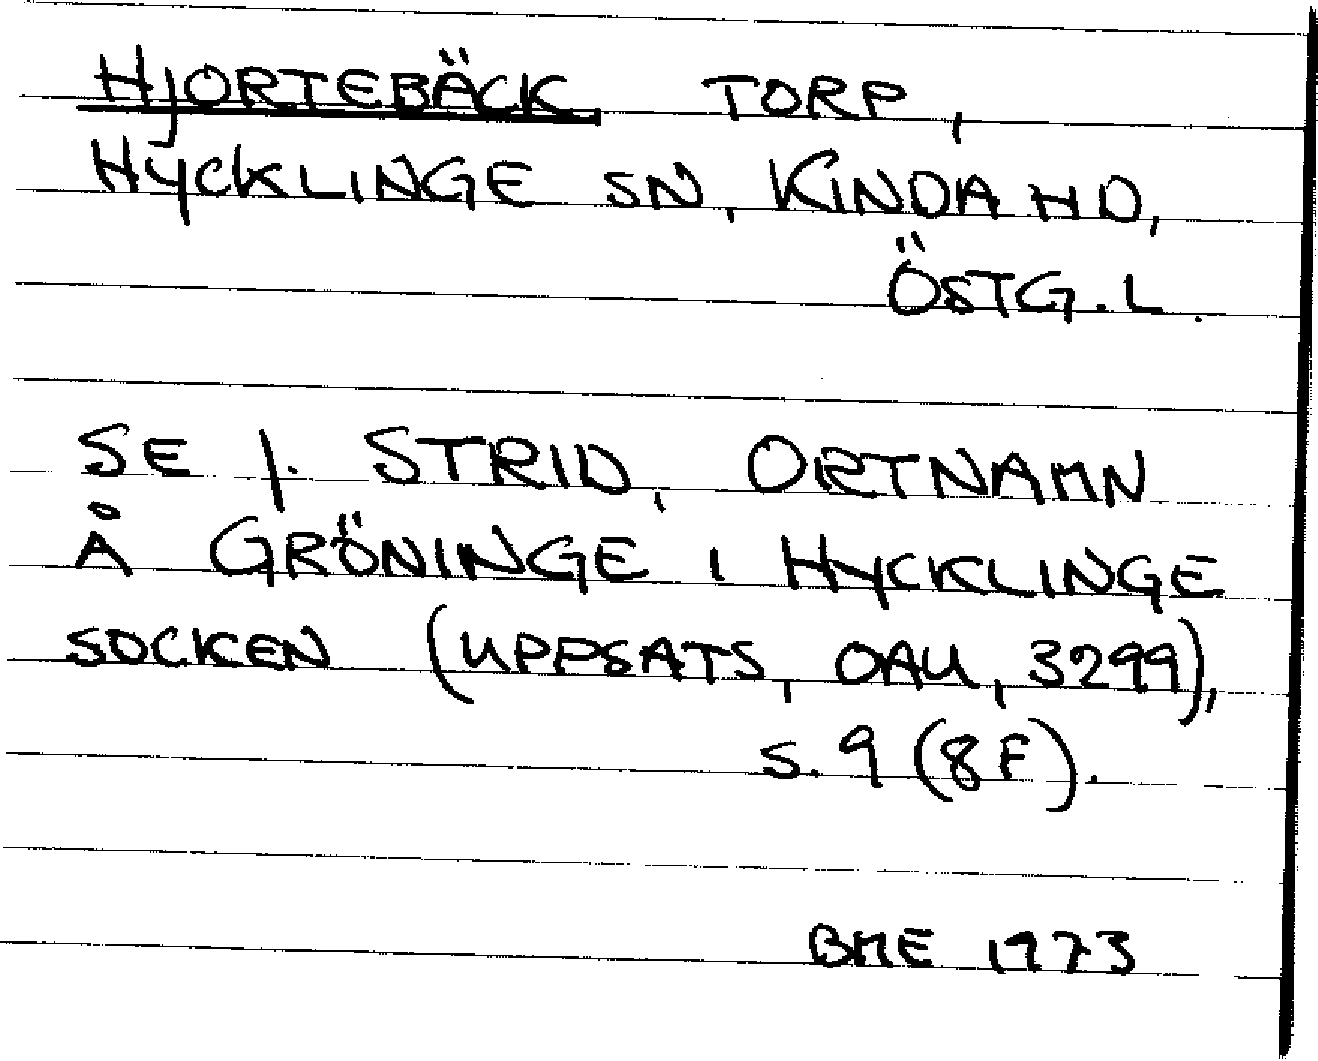 HJORTEBÄCK TORP,
HYCKLINGE SN, KINDA HD,
ÖSTG. L.
SE I. STRID, ORTNAMN
Å GRÖNINGE I HYCKLINGE
SOCKEN (UPPSATS, OAU, 3299),
S. 9 (8F).
BME 1973